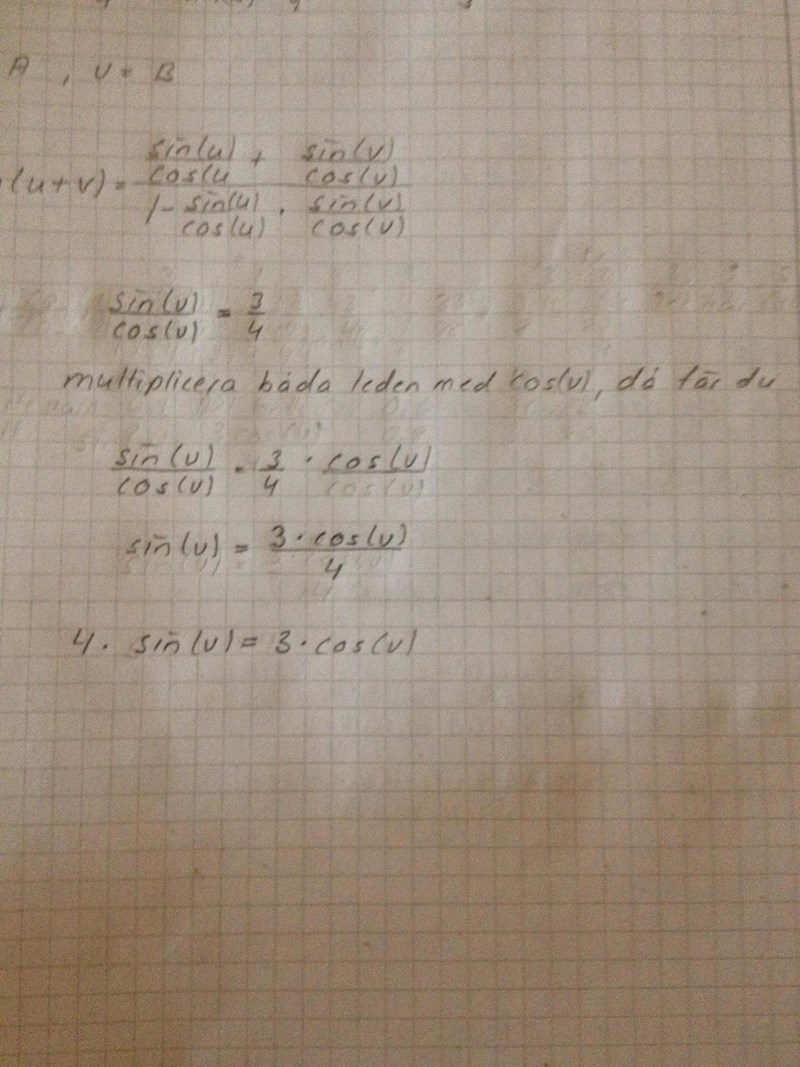 A , v = B
(u+v) = \frac{\frac{sin(u)}{cos(u} + \frac{sin(v)}{cos(v)}}{1 - \frac{sin(u)}{cos(u)} · \frac{sin(v)}{cos(v)}}
\frac{sin(v)}{cos(v)} = \frac{3}{4}
multiplicera båda leden med cos(v), då får du
\frac{sin(v)}{cos(v)} = \frac{3}{4} · cos(v)
sin(v) = \frac{3 · cos(v)}{4}
4 · sin(v) = 3 · cos(v)